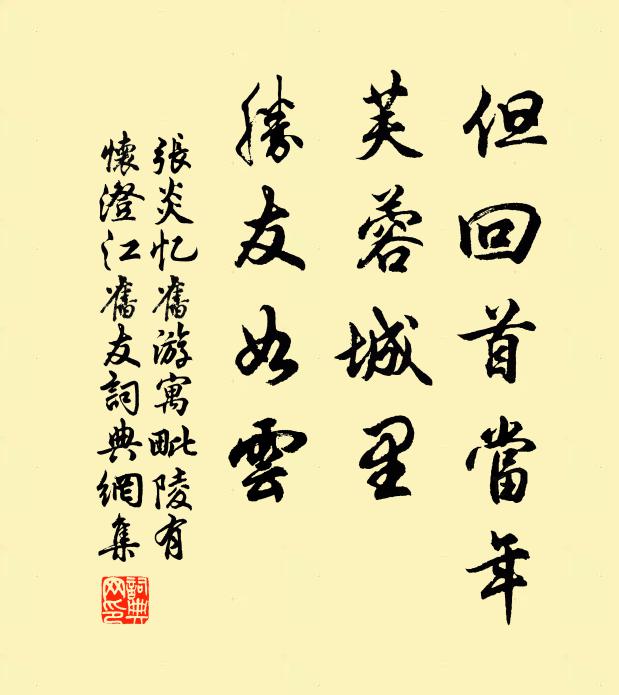 但回首當年
芙蓉城里
勝友如雲
張炎忆舊游寓毗陵有
懷澄江舊友詞典網集
詞典网印